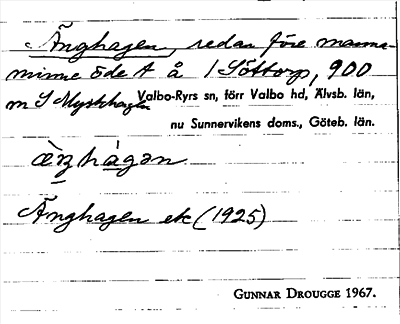 Änghagen, redan före manna-
minne öde t å 1 Söttorp, 900
m S Myrhhagen Valbo-Ryrs sn, förr Valbo hd, Älvsb. län,
nu Sunnervikens doms., Göteb. län.
Änghagen etc (1925)
GUNNAR DROUGGE 1967.